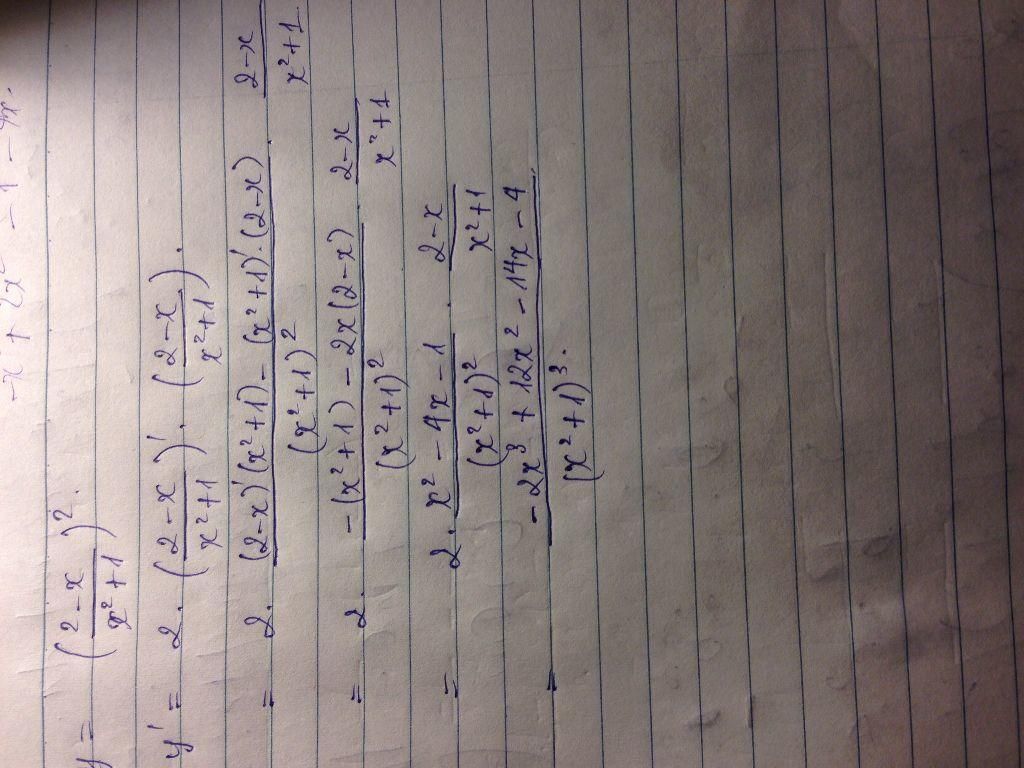 -x² + 2x² - 1 - 4x.
y = ((2-x)/(x²+1))².
y' = 2. ((2-x)/(x²+1))'. ((2-x)/(x²+1)).
= 2. ((2-x)'(x²+1) - (x²+1)'.(2-x))/(x²+1)² . (2-x)/(x²+1)
= 2. (-(x²+1) - 2x(2-x))/(x²+1)² . (2-x)/(x²+1)
= 2. (x² - 4x - 1)/(x²+1)² . (2-x)/(x²+1)
= (-2x³ + 12x² - 14x - 4)/(x²+1)³.